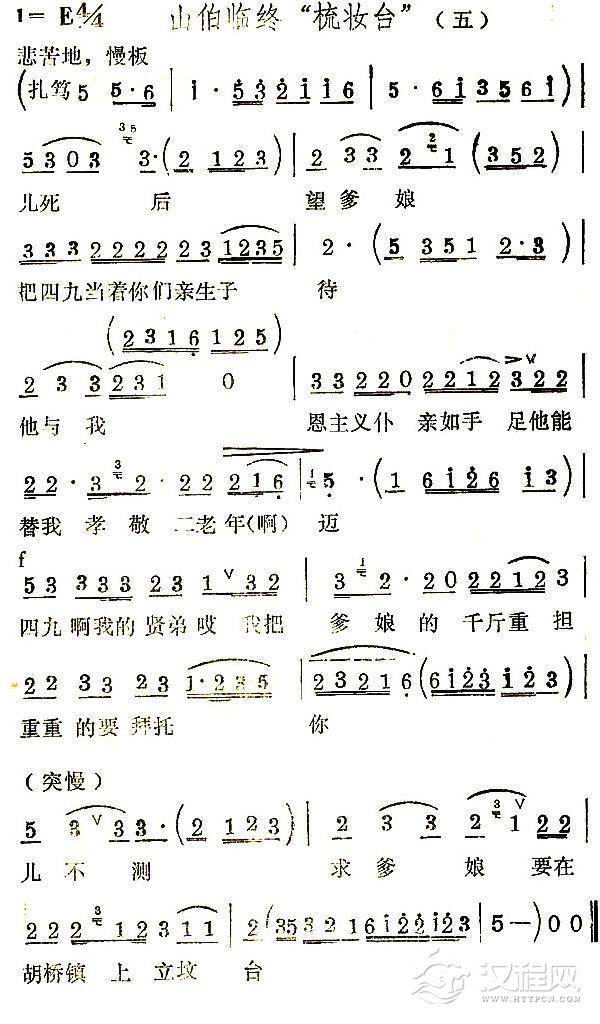 1= E 4/4 山伯临终“梳妆台”（五）
悲苦地，慢板
(扎笃5 5·6 | i·53 2i i6 | 5·6i 3561 |
5303 3·(2 123) | 2 33 2 1 (352) |
儿死 后 望爹娘
333 22222 23 1235 | 2·(5 351 2·3) |
把四九当着你们亲生子 待
(2316 125)
2 33 231 0 | 33 220 2212 322 |
他与我 恩主义仆 亲如手 足他能
22·32·22 216 | 5·(1 6i26 i3)
替我 孝敬 二老年（啊）迈
f
53 333 23 1 ∨ 32 | 3 2·20 2212 3 |
四九啊我的 贤弟 哎 我把 爹娘的 千斤重担
22 33 23 1·235 | 23216 (6i23 i23) |
重重的要拜托 你
（突慢）
5 3 ∨ 33·(2 123) | 2 3 3 2 1 ∨ 22 |
儿 不 测 求爹 娘 要在
222 2 123 11 | 2 (35 321 6i22i23 | 5—) 00 ‖
胡桥镇 上 立坟 台
汉程网
WWW.HTTPCN.COM